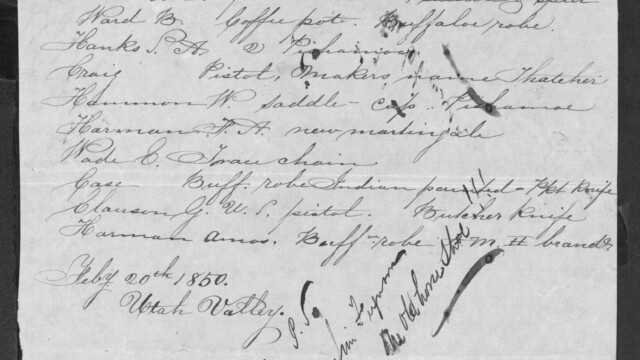 Ward B. Coffee pot. Buffaloe robe.
Hanks S. A. 2 Pishamores
Craig Pistol, makers name Thatcher
Hammon W. saddle - Pishamoe
Harman F. A. new martingale
Wade E. Trace chain
Case Buff. robe Indian painted - Pkt Knife
Clauson G. U. S. pistol. Butcher Knife
Harman Amos. Buff robe M. H brands
Feby 20th 1850.
Utah Valley.
P. S.
Jim
one old horse shoe